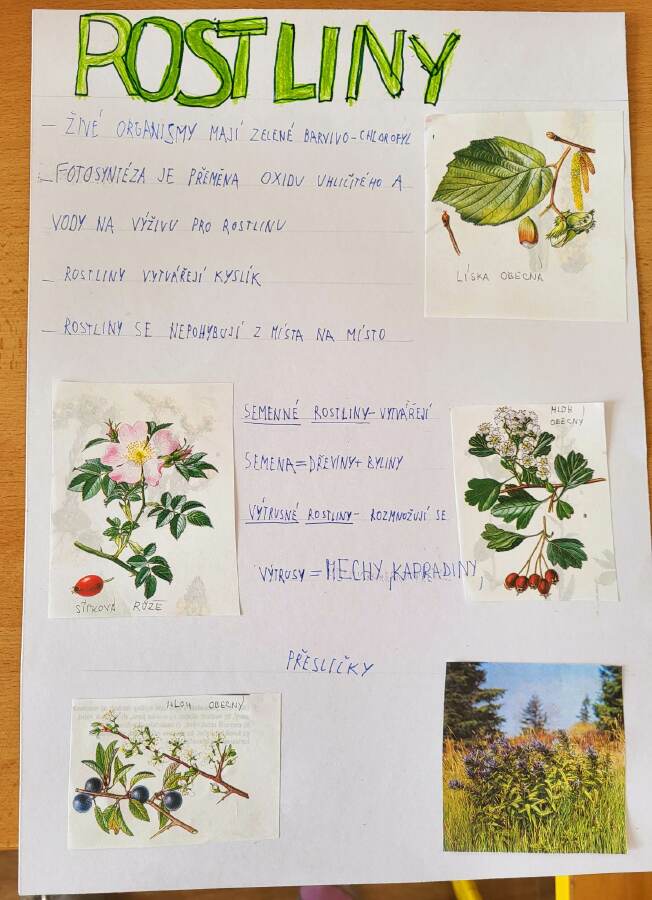 ROSTLINY
- ŽIVÉ ORGANISMY MAJÍ ZELENÉ BARVIVO-CHLOROFYL
- FOTOSYNTÉZA JE PŘEMĚNA OXIDU UHLIČITÉHO A
VODY NA VÝŽIVU PRO ROSTLINU
- ROSTLINY VYTVÁŘEJÍ KYSLÍK
- ROSTLINY SE NEPOHYBUJÍ Z MÍSTA NA MÍSTO
LÍSKA OBECNÁ
SEMENNÉ ROSTLINY- VYTVÁŘEJÍ
SEMENA = DŘEVINY + BYLINY
VÝTRUSNÉ ROSTLINY- ROZMNOŽUJÍ SE
VÝTRUSY = MECHY, KAPRADINY,
PŘESLIČKY
HLOH
OBECNÝ
ŠÍPKOVÁ RŮŽE
HLOH OBECNÝ